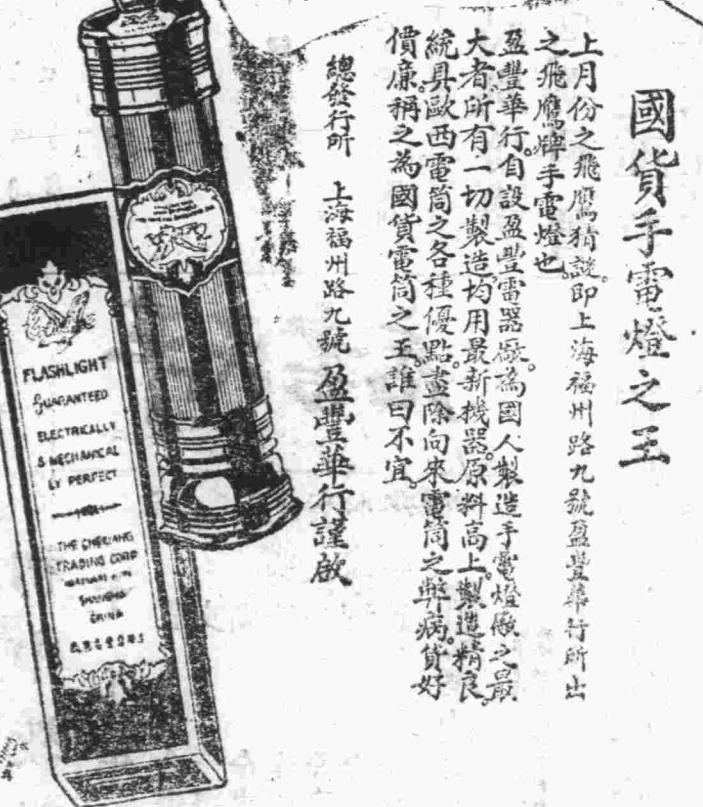 國貨手電燈之王
上月份之飛鷹猜謎。即上海福州路九號盈豐華行所出
之飛鷹牌手電燈也。
盈豐華行。自設盈豐電器廠。為國人製造手電燈廠之最
大者。所有一切製造均用最新機器。原料高上。製造精良。
統具歐西電筒之各種優點。盡除向來電筒之弊病。貨好
價廉。稱之為國貨電筒之王。誰曰不宜。
總發行所 上海福州路九號 盈豐華行謹啟
FLASHLIGHT
GUARANTEED
ELECTRICALLY
& MECHANICAL
LY PERFECT
TRADING CORP
SHANGHAI
CHINA